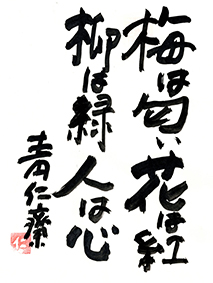 梅は匂い花は紅
柳は緑人は心
青仁齋
仁